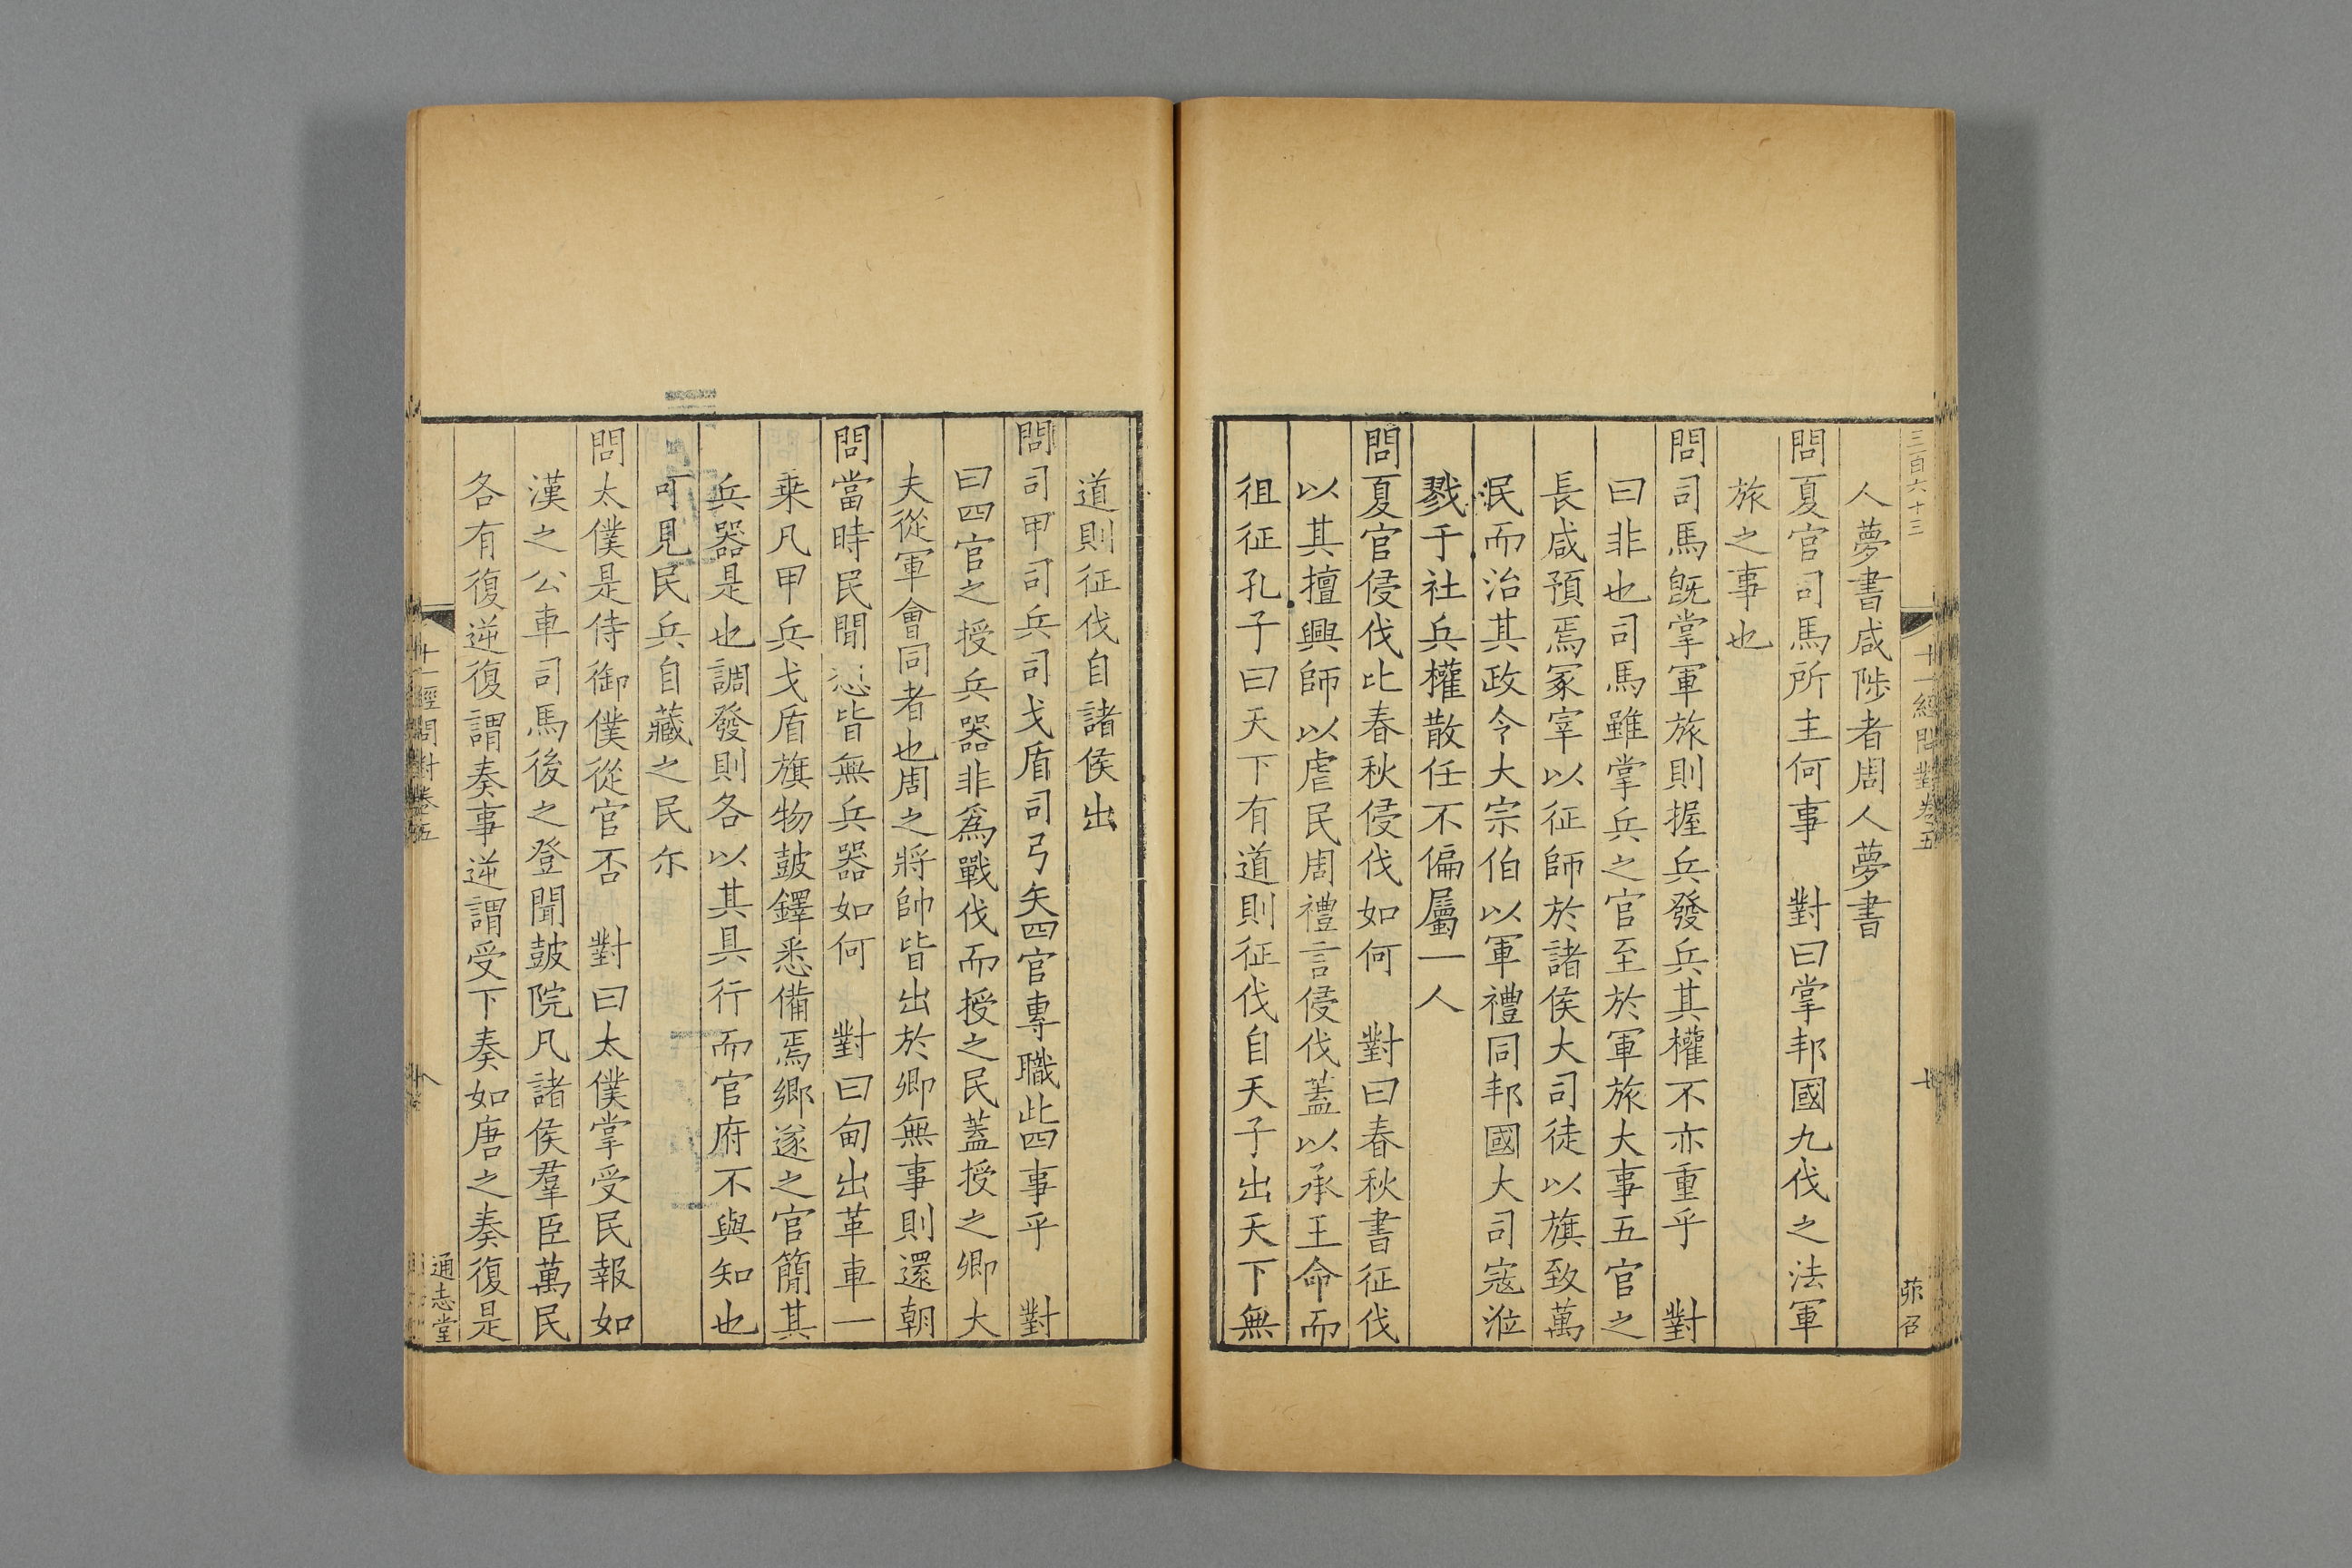 三百六十三
十一經問對卷五
七
茆召
人夢書咸陟者周人夢書
問夏官司馬所主何事　對曰掌邦國九伐之法軍
旅之事也
問司馬旣掌軍旅則握兵發兵其權不亦重乎　對
曰非也司馬雖掌兵之官至於軍旅大事五官之
長咸預焉冢宰以征師於諸侯大司徒以旗致萬
民而治其政令大宗伯以軍禮同邦國大司寇涖
戮于社兵權散任不偏屬一人
問夏官侵伐比春秋侵伐如何　對曰春秋書征伐
以其擅興師以虐民周禮言侵伐蓋以承王命而
徂征孔子曰天下有道則征伐自天子出天下無
道則征伐自諸侯出
問司甲司兵司戈盾司弓矢四官專職此四事乎　對
曰四官之授兵器非爲戰伐而授之民蓋授之卿大
夫從軍會同者也周之將帥皆出於卿無事則還朝
問當時民間恐皆無兵器如何　對曰甸出革車一
乗凡甲兵戈盾旗物鼓鐸悉備焉鄉遂之官簡其
兵器是也調發則各以其具行而官府不與知也
可見民兵自藏之民尓
問太僕是侍御僕從官否　對曰太僕掌受民報如
漢之公車司馬後之登聞鼓院凡諸侯羣臣萬民
各有復逆復謂奏事逆謂受下奏如唐之奏復是
十一經問對卷五
八
通志堂